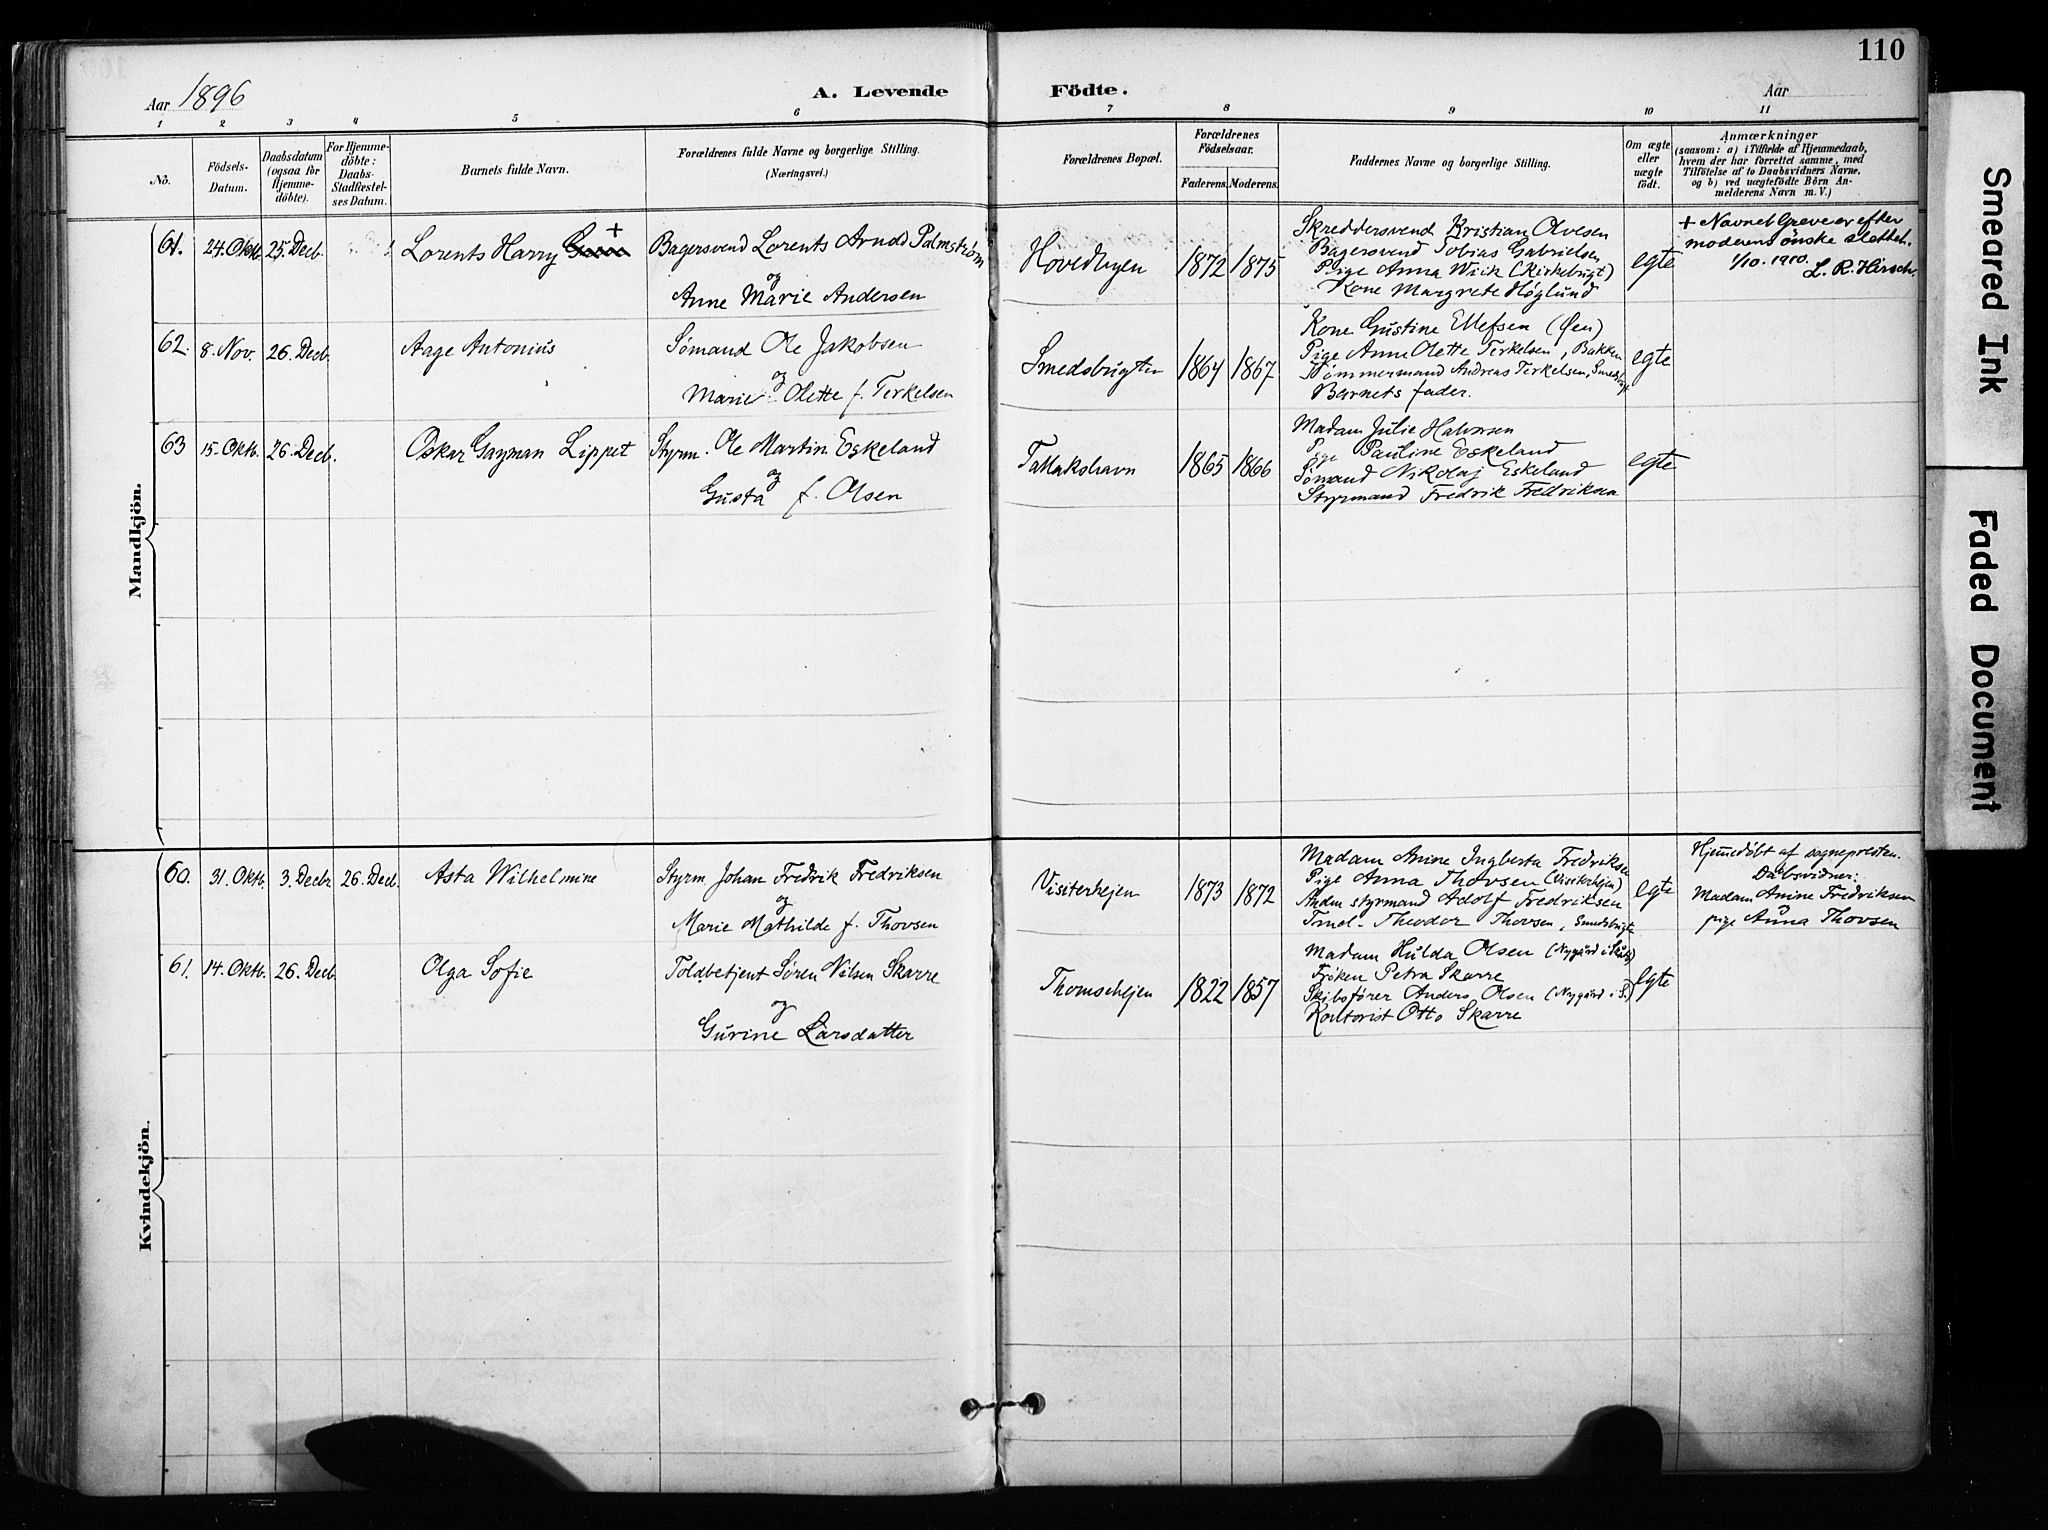 110
Aar 1896
A. Levende Födte.
Aar
1 2 3 4 5 6 7 8 9 10 11
No.
Födsels-Datum.
Daabsdatum (ogsaa for Hjemme-döbte).
For Hjemme-döbte: Daabs-Stadfæstel-ses Datum.
Barnets fulde Navn.
Forældrenes fulde Navne og borgerlige Stilling.
(Næringsvei.)
Forældrenes Bopæl.
Forældrenes Födselsaar.
Faderens. Moderens.
Faddernes Navne og borgerlige Stilling.
Om ægte eller uægte födt.
Anmærkninger
(saasom: a) i Tilfælde af Hjemmedaab,
hvem der har forrettet samme, med
Tilföielse af to Daabsvidners Navne,
og b) ved uægtefödte Börn An-
melderens Navn m. V.)
Mandkjön.
61. 24. Oktb. 25. Decb. Lorents Harry +
Bagersvend Lorents Arndd Palmstrøm
og
Anne Marie Andersen
Hovedbyen 1872 1875
Skreddersvend Kristian Olvesen
Bagersvend Tobias Gabrielsen
Pige Anna Wiik (Kirkebugt)
Kone Margrete Høglund
egte
+ Navnet Greve er efter
moderens önske slettet.
1/10. 1910. L. R. Hirsch.
62. 8. Nov. 26. Decb. Aage Antonius
Sømand Ole Jakobsen
og
Marie Olette f. Terkelsen
Smedsbugten 1864 1867
Kone Gustine Ellefsen (Øen)
Pige Anne Olette Terkelsen, Bakken
Tømmermand Andreas Terkelsen, Smedsbugt
Barnets fader.
egte
63 15. Oktb. 26. Decb. Oskar Gayman Lippet
Styrm. Ole Martin Eskeland
og
Gusta f. Olsen
Tallakshavn 1865 1866
Madam Julie Halvorsen
Pige Pauline Eskeland
Sømand Nikolaj Eskeland
Styrmand Fredrik Fredriksen
egte
Kvindekjön.
60. 31. Oktb. 3. Decbr 26. Decb. Asta Wilhelmine
Styrm Johan Fredrik Fredriksen
og
Marie Mathilde f. Thovsen
Visiterhejen 1873 1872
Madam Anine Ingberta Fredriksen
Pige Anna Thovsen (Visiterhejen)
Anden styrmand Adolf Fredriksen
Theodor Thovsen, Smedsbugten
egte
Hjemmedöbt af sognepresten.
Daabsvidner:
Madam Anine Fredriksen
pige Anna Thovsen
61. 14. Oktb. 26. Decb Olga Sofie
Toldbetjent Søren Nilsen Skarre
og
Gurine Larsdatter
Thomsehejen 1822 1857
Madam Hulda Olsen (Nygård i
Frøken Petra Skarre
Skibsfører Anders Olsen (Nygård i S.)
Kontorist Otto Skarre
egte
Smeared Ink
Faded Document